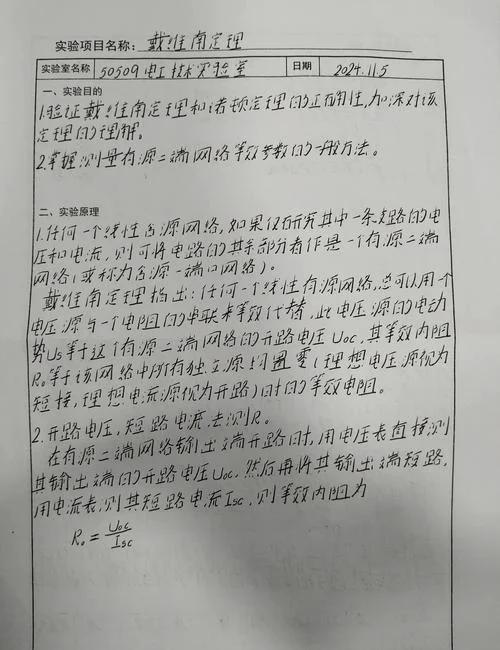 实验项目名称: 戴维南定理
实验室名称 50509电工技术实验室 日期 2024.11.5
一、实验目的
1.验证戴维南定理和诺顿定理的正确性,加深对该
定理的理解。
2.掌握测量有源二端网络等效参数的一般方法。
二、实验原理
1.任何一个线性含源网络,如果仅研究其中一条支路的电
压和电流,则可将电路的其余部分看作是一个有源二端
网络(或称为含源一端口网络)。
戴维南定理指出:任何一个线性有源网络,总可以用一个
电压源与一个电阻的串联来等效代替,此电压源的电动
势Us等于这个有源二端网络的开路电压Uoc,其等效内阻
R₀等于该网络中所有独立源均置零(理想电压源视为
短接,理想电流源视为开路)时的等效电阻。
2.开路电压,短路电流法测R₀
在有源二端网络输出端开路时,用电压表直接测
其输出端的开路电压Uoc,然后再将其输出端短路,
用电流表测其短路电流Isc,则等效内阻为
R₀ = Uoc/Isc